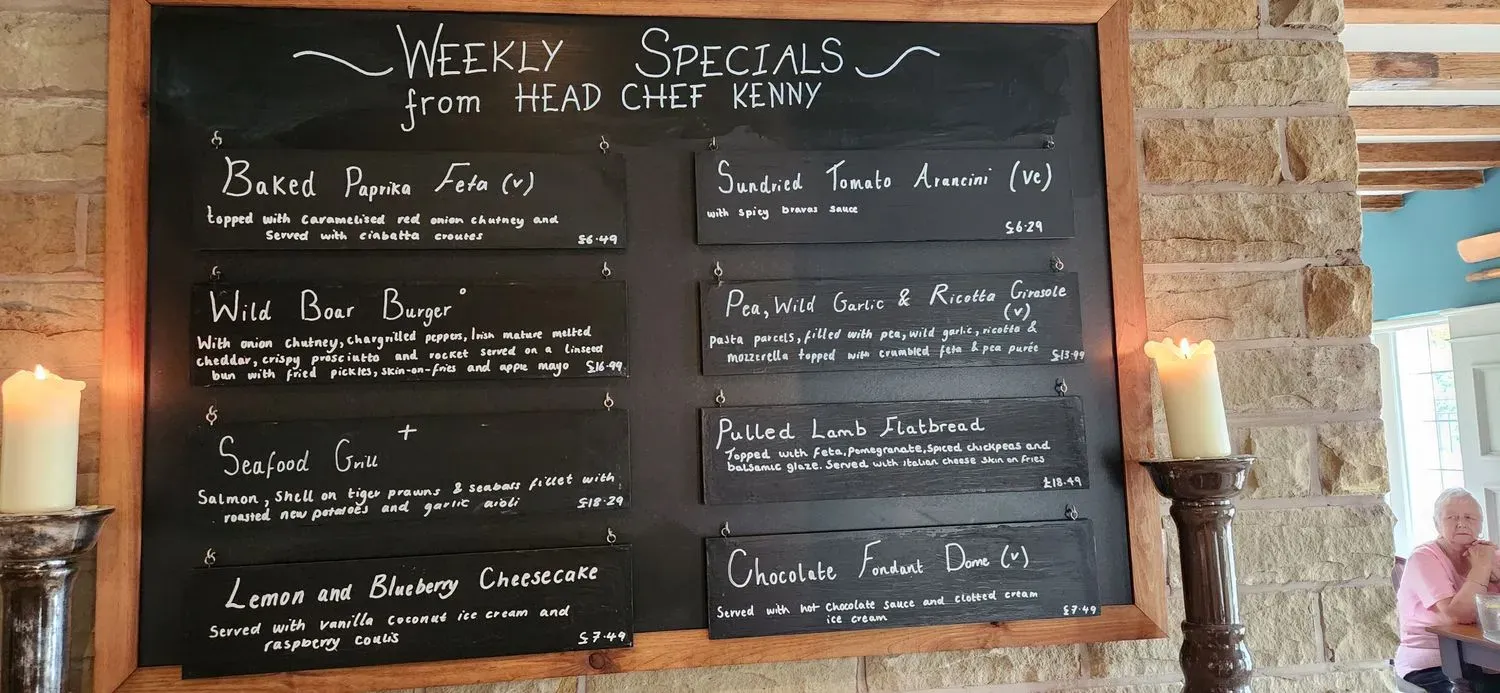 WEEKLY SPECIALS
from HEAD CHEF KENNY
Baked Paprika Feta (v)
topped with caramelised red onion chutney and
Served with ciabatta croutes £6.49
Wild Boar Burger°
With onion chutney, chargrilled peppers, Irish mature melted
cheddar, crispy prosciutto and rocket served on a linseed
bun with fried pickles, skin-on-fries and apple mayo £16.99
Seafood Grill +
Salmon, Shell on tiger prawns & seabass fillet with
roasted new potatoes and garlic aioli £18.29
Lemon and Blueberry Cheesecake
Served with vanilla coconut ice cream and
raspberry coulis £7.49
Sundried Tomato Arancini (ve)
with spicy bravas sauce
£6.29
Pea, Wild Garlic & Ricotta Girasole
(v)
pasta parcels, filled with pea, wild garlic, ricotta &
mozzerella topped with crumbled feta & pea purée £13.99
Pulled Lamb Flatbread
Topped with feta, Pomegranate, Spiced chickpeas and
balsamic glaze. Served with italian cheese skin on fries
£18.49
Chocolate Fondant Dome (v)
Served with hot chocolate sauce and clotted cream
ice cream £7.49